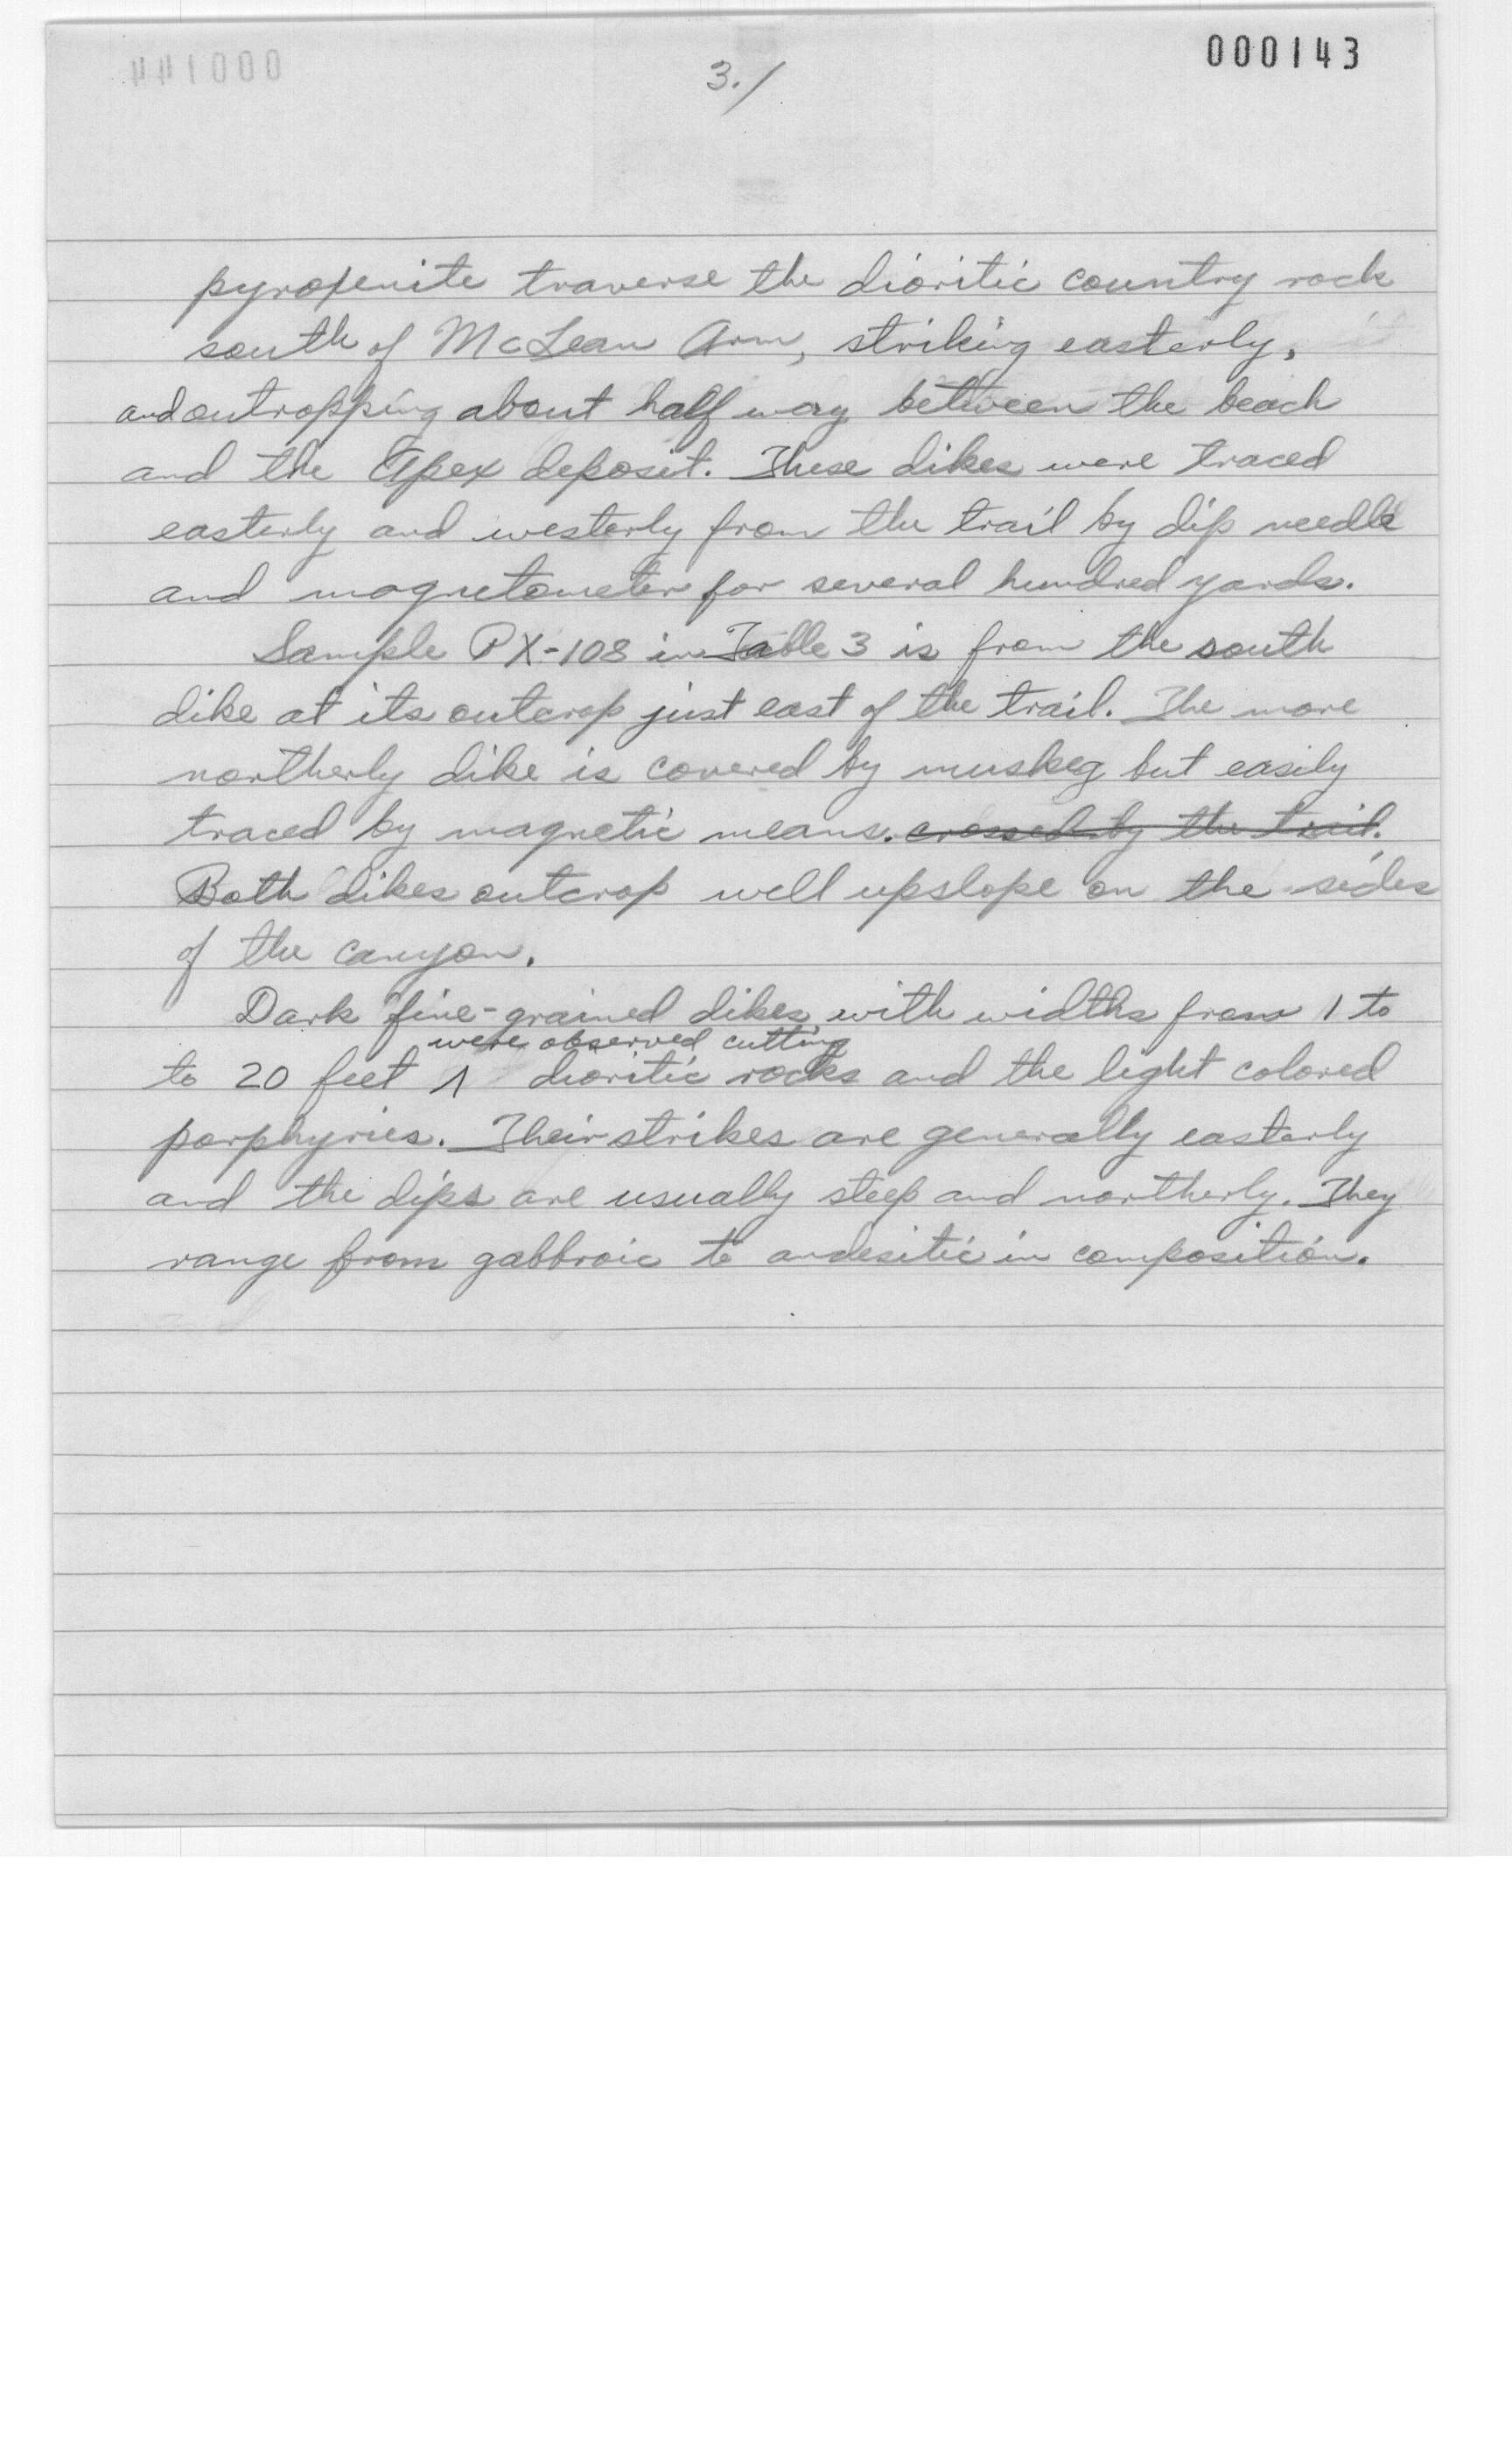 000143
3./
pyroxenite traverse the dioritic country rock
south of McLean Arm, striking easterly,
and outropping about half way between the beach
and the Apex deposit. These dikes were traced
easterly and westerly from the trail by dip needle
and magnetometer for several hundred yards.
Sample PX-108 in Table 3 is from the south
dike at its outcrop just east of the trail. The more
northerly dike is covered by muskeg but easily
traced by magnetic means. crossed by the trail.
Both dikes outcrop well upslope on the sides
of the canyon.
Dark fine-grained dikes with widths from 1 to
were observed cutting
to 20 feet ʌ dioritic rocks and the light colored
porphyries. Their strikes are generally easterly
and the dips are usually steep and northerly. They
range from gabbroic to andesitic in composition.